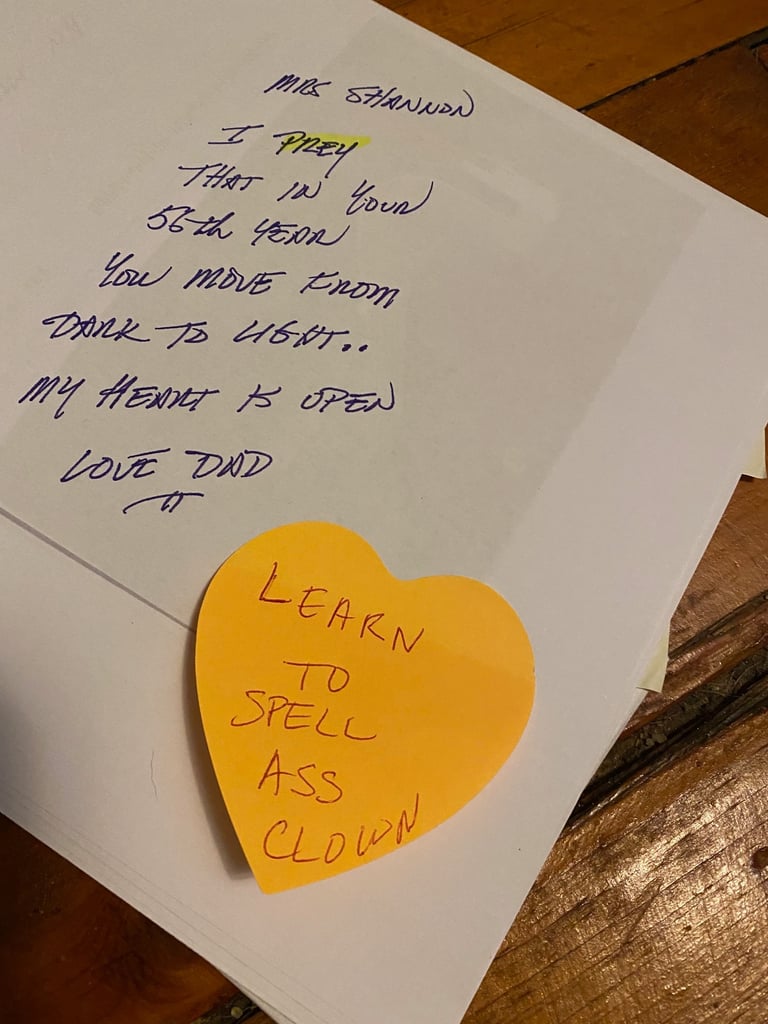 MRS SHANNON
I PREY
THAT IN YOUR
56th YEAR
YOU MOVE FROM
DARK TO LIGHT..
MY HEART IS OPEN
LOVE DAD
LEARN
TO
SPELL
ASS
CLOWN